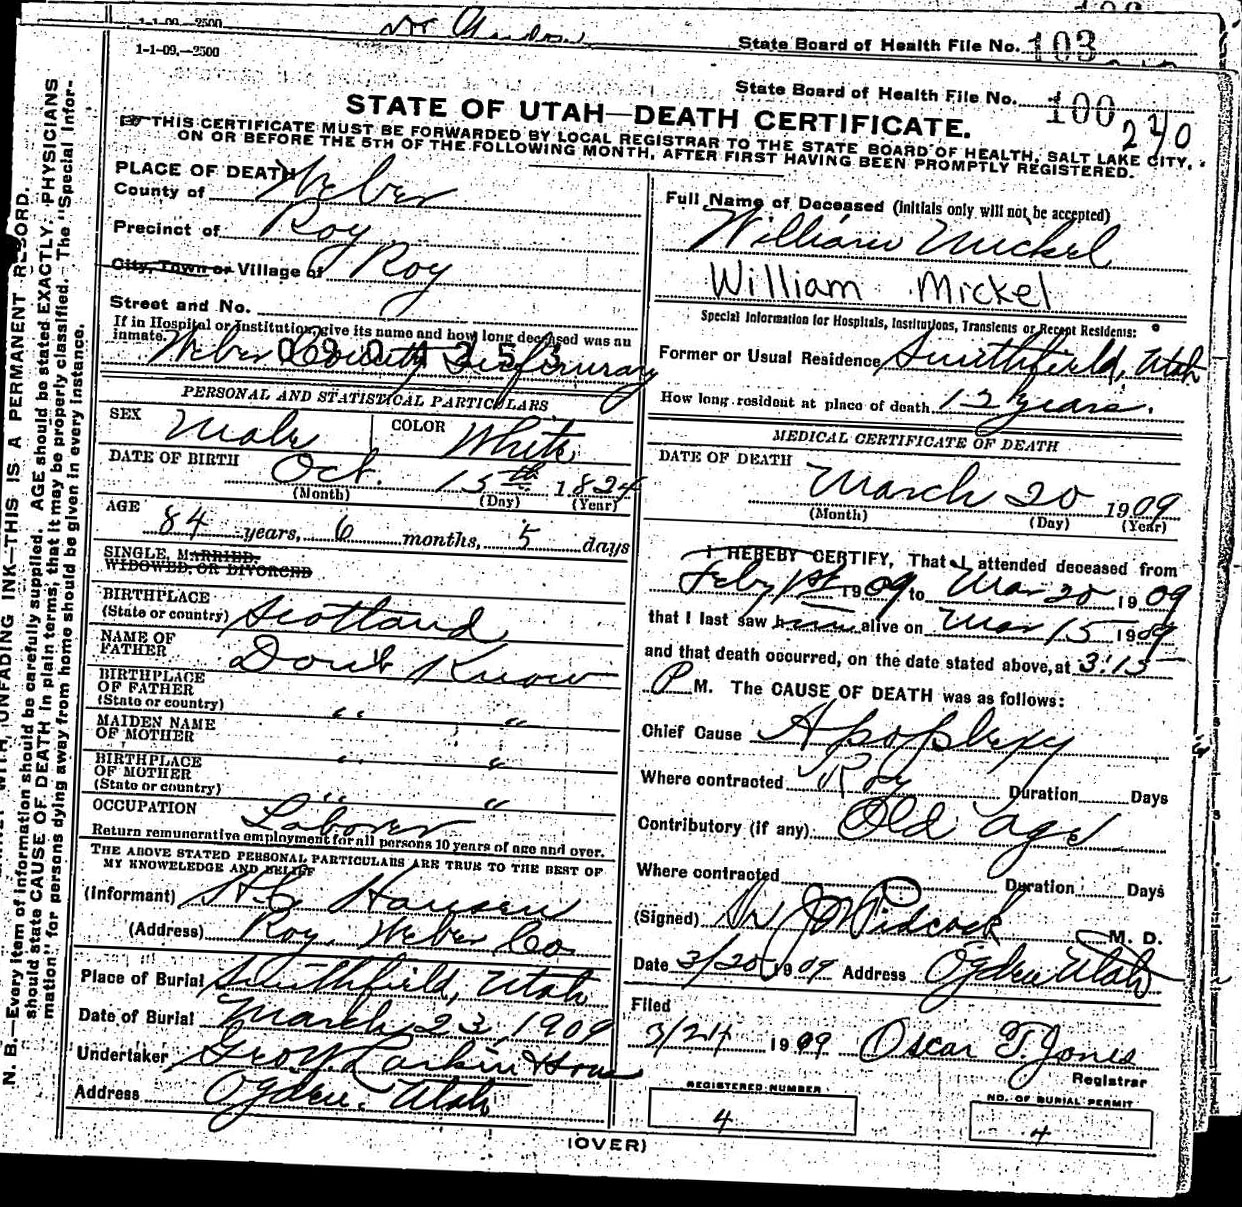 1-1-09.—2500
State Board of Health File No. 103
1-1-09.—2500
State Board of Health File No. 100
270
STATE OF UTAH—DEATH CERTIFICATE.
THIS CERTIFICATE MUST BE FORWARDED BY LOCAL REGISTRAR TO THE STATE BOARD OF HEALTH, SALT LAKE CITY,
ON OR BEFORE THE 5TH OF THE FOLLOWING MONTH, AFTER FIRST HAVING BEEN PROMPTLY REGISTERED.
PLACE OF DEATH
County of Weber
Precinct of Roy
City, Town or Village of Roy
Street and No.
If in Hospital or Institution, give its name and how long deceased was an
inmate. Weber County Infirmary
0904253
PERSONAL AND STATISTICAL PARTICULARS
SEX Male COLOR White
DATE OF BIRTH Oct. 15th 1824
(Month) (Day) (Year)
AGE 84 years, 6 months, 5 days
SINGLE, MARRIED,
WIDOWED, OR DIVORCED
BIRTHPLACE
(State or country) Scotland
NAME OF
FATHER Dont Know
BIRTHPLACE
OF FATHER
(State or country) " "
MAIDEN NAME
OF MOTHER " "
BIRTHPLACE
OF MOTHER
(State or country) " "
OCCUPATION Laborer
Return remunerative employment for all persons 10 years of age and over.
THE ABOVE STATED PERSONAL PARTICULARS ARE TRUE TO THE BEST OF
MY KNOWELEDGE AND BELIEF
(Informant) H.C. Hansen
(Address) Roy, Weber Co
Place of Burial Smithfield, Utah
Date of Burial March 23, 1909
Undertaker Geo W. Larkin & Sons
Address Ogden, Utah
Full Name of Deceased (initials only will not be accepted)
William Mickel
William Mickel
Special Information for Hospitals, Institutions, Transients or Recent Residents:
Former or Usual Residence Smithfield, Utah
How long resident at place of death 12 years.
MEDICAL CERTIFICATE OF DEATH
DATE OF DEATH
March 20 1909
(Month) (Day) (Year)
I HEREBY CERTIFY, That I attended deceased from
Feby 1st 1909 to Mar 20 1909
that I last saw him alive on Mar 15 1909
and that death occurred, on the date stated above, at 3:15
P M. The CAUSE OF DEATH was as follows:
Chief Cause Apoplexy
Where contracted Roy Duration Days
Contributory (if any) Old age
Where contracted Duration Days
(Signed) W J Pidcock M. D.
Date 3/20 1909 Address Ogden Utah
Filed
3/24 1909 Oscar T. Jones
Registrar
REGISTERED NUMBER
4
NO. OF BURIAL PERMIT
4
(OVER)
N. B.—Every item of information should be carefully supplied. AGE should be stated EXACTLY. PHYSICIANS
should state CAUSE OF DEATH in plain terms, that it may be properly classified. The "Special Infor-
mation" for persons dying away from home should be given in every instance.
UNFADING INK—THIS IS A PERMANENT RECORD.